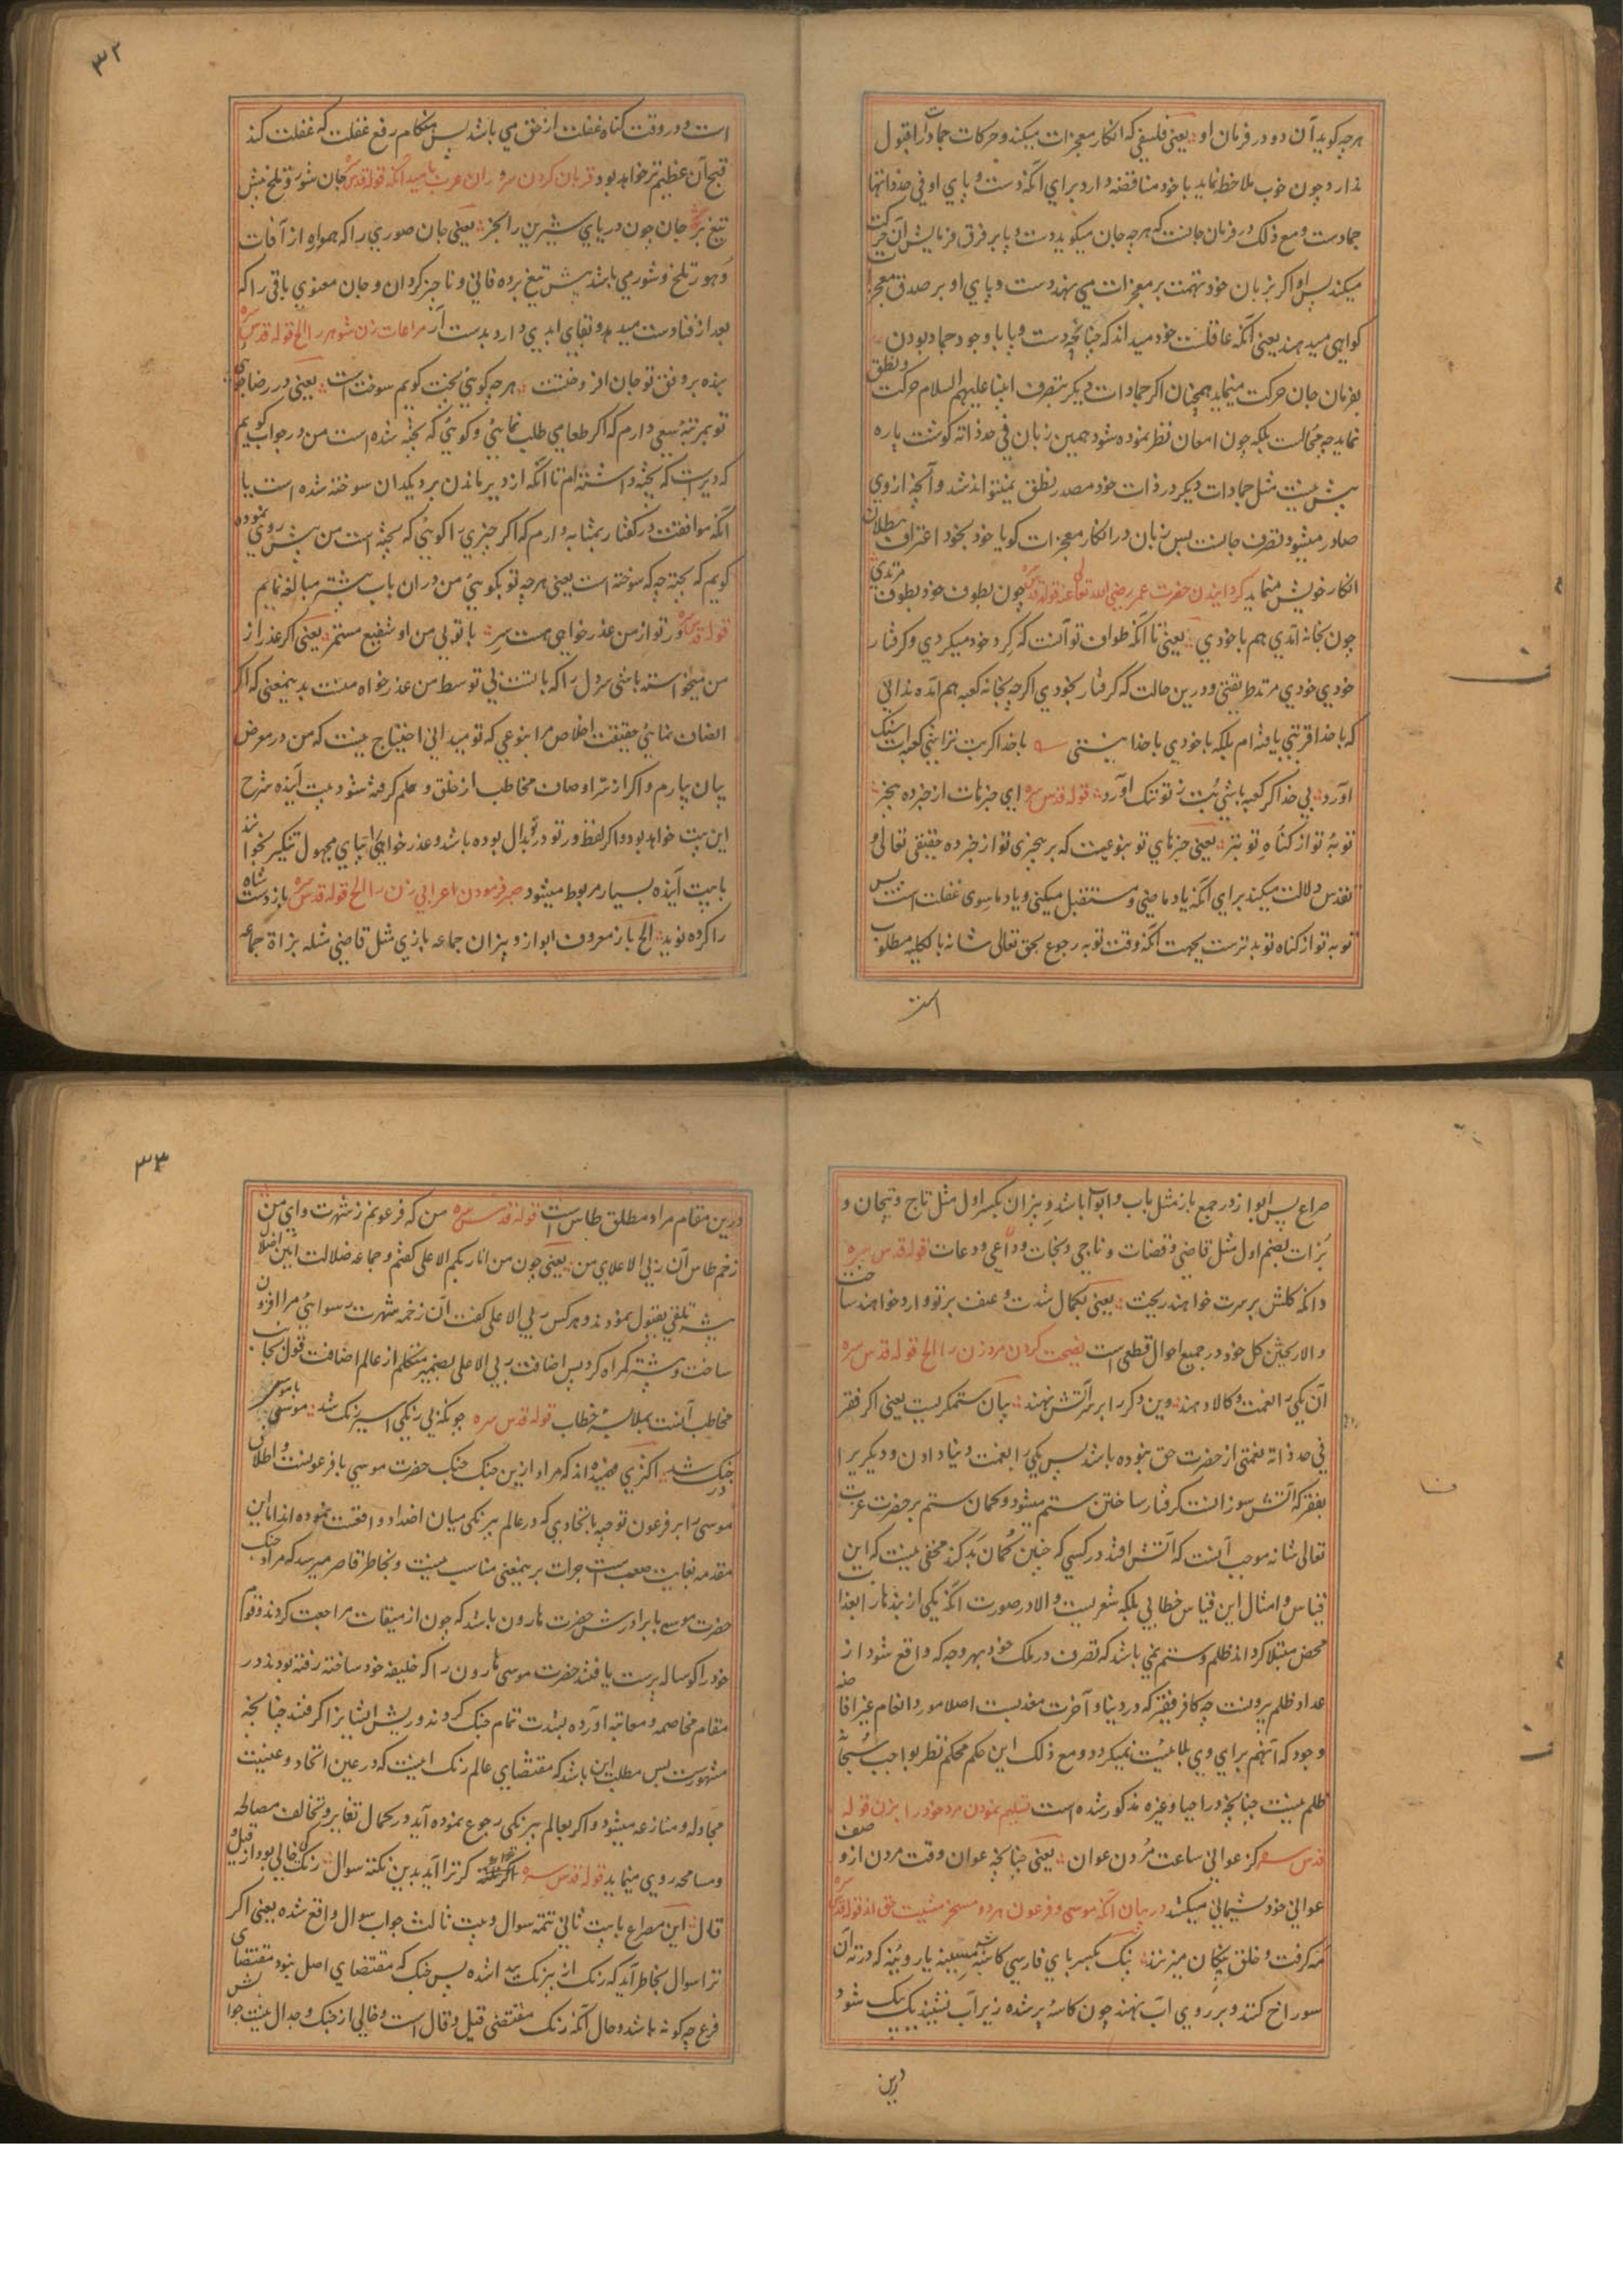 هرچه گوید آن دو در فرمان او یعنی فلسفی که انکار معجزات میکند و حرکات جمادات را قبول
ندارد چون خوب ملاحظه نماید با خود مناقضه دارد برای آنکه دست و پای او فی حد ذاتها
جمادست و مع ذلک در فرمان جانست که هرچه جان میگوید دست و پا بر فرق فرمایش آن حرکت
میکند پس او اگر بزبان خود تهمت بر معجزات می نهد دست و پای او بر صدق معجزات
گواهی میدهند یعنی آنکه عاقلست خود میداند که چنانچه دست و پا با وجود جماد بودن
بفرمان جان حرکت مینماید همچنان اگر جمادات دیگر بتصرف انبیا علیهم السلام حرکت و نطق
نماید چه محالست بلکه چون امعان نظر نموده شود همین زبان فی حد ذاته گوشت پاره
بیش نیست مثل جمادات دیگر در ذات خود مصدر نطق نمیتواند شد و آنچه از وی
صادر میشود تصرف جانست پس زبان در انکار معجزات گویا خود بخود اعتراف بطلان
انکار خویش مینماید گردانیدن حضرت عمر رضی الله تعالی عنه قوله قدس سره چون بطوف خود بطوفی مرتدی
چون بخانه آمدی هم با خودی یعنی تا آنکه طواف تو آنست که گرد خود میگردی و گرفتار
خودی خودی مرتد طریقتی و درین حالت که گرفتار بخودی اگرچه بخانه کعبه هم آمده ندانی
که با خدا قربتی یافته ام بلکه با خودی با خدا نیستی با خدا گر بت تراشی کعبه است سنگ
آورد بی خدا گر کعبه باشی بت ز تو ننگ آورد قوله قدس سره ای خبرهات از خبرده بیخبر
توبهٔ تو از گناه تو بتر یعنی خبرهای تو بنوعیست که بر بیخبری تو از خبرده حقیقی تعالی و
تقدس دلالت میکند برای آنکه یاد ماضی و مستقبل میکنی و یاد ماسوی غفلت است پس
توبه تو از گناه تو بدترست بجهت آنکه وقت توبه رجوع بحق تعالی شانه بالکلیه مطلوب
است
۳۲
است و در وقت گناه غفلت از حق می باشد پس هنگام رفع غفلت که غفلت کند
قبح آن عظیم تر خواهد بود قربان کردن سروران عرب بامید آنکه قوله قدس سره جان شور و تلخ پیش
تیغ بر جان چون دریای شیرین را بخر یعنی جان صوری را که همواره از آفات
دهور تلخ و شور می باشد پیش تیغ برده فانی و ناچیز گردان و جان معنوی باقی را که
بعد از فنا دست میدهد و بقای ابدی دارد بدست آر مراعات زن شوهر را الخ قوله قدس سره
بنده بر وفق تو جان افروختست هرچه گوئی پخت گویم سوختست یعنی در رضا جوئی
تو بمرتبه سعی دارم که اگر طعامی طلب نمائی و گوئی که پخته شده است من در جواب گویم
که دیرست که پخته داشته ام تا آنکه از دیر ماندن بر دیگدان سوخته شده است یا
آنکه موافقت در گفتار بمثابه دارم که اگر چیزی را گوئی که پخته است من پیش روی نموده
گویم که پخته چه که سوخته است یعنی هرچه تو بگوئی من در ان باب بیشتر مبالغه نمایم
قوله قدس سره ور تو از من عذرخواهی هست سر با تو بی من او شفیع مستمر یعنی اگر عذر از
من میخواسته باشی سر دل را که با تست بی توسط من عذرخواه منست بدینمعنی که اگر
انصاف نمائی حقیقت اخلاص مرا بنوعی که تو میدانی احتیاج نیست که من در معرض
بیان بیارم و اگر از سر اوصاف مخاطب از خلق و حلم گرفته شود بیت آینده شرح
این بیت خواهد بود و اگر لفظ ور تو در تو بدال بوده باشد و عذرخواهی را بیای مجهول تنکیر بخوانند
با بیت آینده بسیار مربوط میشود صبر فرمودن اعرابی زن را الخ قوله قدس سره باز دست شاه
را کرده نوید الخ باز معروف ابواز و بیزان جماعه بازی مثل قاضی مثله بزاة جماعه
صراع پس ابواز در جمع باز مثل باب و ابواب باشد و بیزان بکسر اول مثل تاج و تیجان و
بزات بضم اول مثل قاضی و قضات و ناجی و نجات و داعی و دعات قوله قدس سره
دانکه کلش بر سرت خواهند ریخت یعنی بکمال شدت و عنف بر تو وارد خواهند ساخت
و الا ریختن کل خود در جمیع احوال قطعی است نصیحت کردن مرد زن را الخ قوله قدس سره
آن یکی را نعمت و کالا دهند وین دگر را بر سر آتش نهند بیان ستمگریست یعنی اگر فقر
فی حد ذاته نعمتی از حضرت حق نبوده باشد پس یکی را نعمت دنیا دادن و دیگری را
بفقر که آتش سوزانست گرفتار ساختن ستم میشود و گمان ستم بر حضرت عزت
تعالی شانه موجب آنست که آتش افتد در کسی که چنین گمان بد کند مخفی نیست که این
قیاس و امثال این قیاس خطابی بلکه شعریست و الا در صورت آنکه یکی از بندها را بعذاب
محض مبتلا گرداند ظلم و ستم نمی باشد که تصرف در ملک خود بهر وجه که واقع شود از
عداد ظلم بیرونست چه کافر فقیر که در دنیا و آخرت معذبست اصلا مورد انعام غیر افاضه
وجود که آنهم برای وی بلائیست نمیگردد و مع ذلک این حکم محکم نظر بواجب سبحانه
ظلم نیست چنانچه در احیا و غیره مذکور شده است تسلیم نمودن مرد خود را بزن قوله
قدس سره کز عوانی ساعت مردن عوان یعنی چنانچه عوان وقت مردن از وصف
عوانی خود پشیمانی میکشد در بیان آنکه موسی و فرعون هر دو مسخر مشیت حق اند قوله قدس سره
مه گرفت و خلق پنگان میزنند پنگ بکسر بای فارسی کاسه مسینه یا روئینه که در ته آن
سوراخ کنند و بر روی آب نهند چون کاسه پر شده زیر آب نشیند یک پنگ شود
درین
۳۳
درین مقام مراد مطلق طاس است قوله قدس سره من که فرعونم ز شهرت وای من
زخم طاس آن ربی الاعلای من یعنی چون من انا ربکم الاعلی گفتم و جماعه ضلالت آئین اضلال
پیشه تلقی بقبول نمودند و هر کس ربی الاعلی گفت آن زخمه شهرت رسوائی مرا افزون
ساخت و بیشتر گمراه کرد پس اضافت ربی الاعلی بضمیر متکلم از عالم اضافت قول بجانب
مخاطب آنست بملابسه خطاب قوله قدس سره چونکه بی رنگی اسیر رنگ شد موسی با موسی
در جنگ شد اکثری فهمیده اند که مراد ازین جنگ جنگ حضرت موسی با فرعونست و اطلاق
موسی را بر فرعون توجیه باتحادی که در عالم بیرنگی میان اضداد واقعست نموده اند اما این
مقدمه بغایت صعب است جرات برینمعنی مناسب نیست و بخاطر قاصر میرسد که مراد جنگ
حضرت موسی با برادرش حضرت هارون باشد که چون از میقات مراجعت کردند و قوم
خود را گوساله پرست یافتند حضرت موسی هارون را که خلیفه خود ساخته رفته بودند در
مقام مخاصمه و معاتبه آورده بشدت تمام جنگ کردند و ریش ایشانرا گرفتند چنانچه
مشهورست پس مطلب این باشد که مقتضای عالم رنگ اینست که در عین اتحاد و عینیت
مجادله و منازعه میشود و اگر بعالم بیرنگی رجوع نموده آید در کمال تغایر و تخالف مصالحه
و مسامحه روی مینماید قوله قدس سره گر ترا آید بدین نکته سوال رنگ کی خالی بود از قیل و
قال این مصراع با بیت ثانی تتمه سوال و بیت ثالث جواب سوال واقع شده یعنی اگر
ترا سوال بخاطر آید که رنگ از بیرنگ پیدا شده پس جنگ که مقتضای اصل نبود مقتضای
فرع چه گونه باشد و حال آنکه رنگ مقتضی قیل و قال است و خالی از جنگ و جدال نیست جوابش